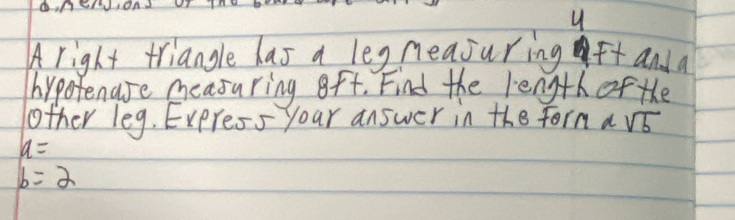 d. Mensions of the board are
4
A right triangle has a leg measuring ft and a
hypotenuse measuring 8ft. Find the length of the
other leg. Express your answer in the form a √b
a=
b= 2